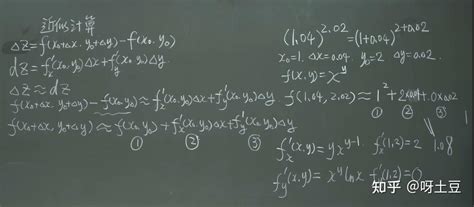 近似计算
Δz=f(x₀+Δx, y₀+Δy)-f(x₀, y₀)
dz=f'ₓ(x₀,y₀)Δx+f'ᵧ(x₀,y₀)Δy
Δz≈dz
f(x₀+Δx, y₀+Δy)-f(x₀,y₀)≈f'ₓ(x₀,y₀)Δx+f'ᵧ(x₀,y₀)Δy
f(x₀+Δx, y₀+Δy)≈f(x₀,y₀)+f'ₓ(x₀,y₀)Δx+f'ᵧ(x₀,y₀)Δy
① ② ③
(1.04)^2.02=(1+0.04)^2+0.02
x₀=1. Δx=0.04. y₀=2 Δy=0.02.
f(x,y)=x^y
f(1.04, 2.02)≈1²+2×0.04+0×0.02
① ② ③
f'ₓ(x,y)=yx^y-1 f'ₓ(1,2)=2 1.08
f'ᵧ(x,y)=x^y ln x f'ᵧ(1,2)=0
知乎 @呀土豆